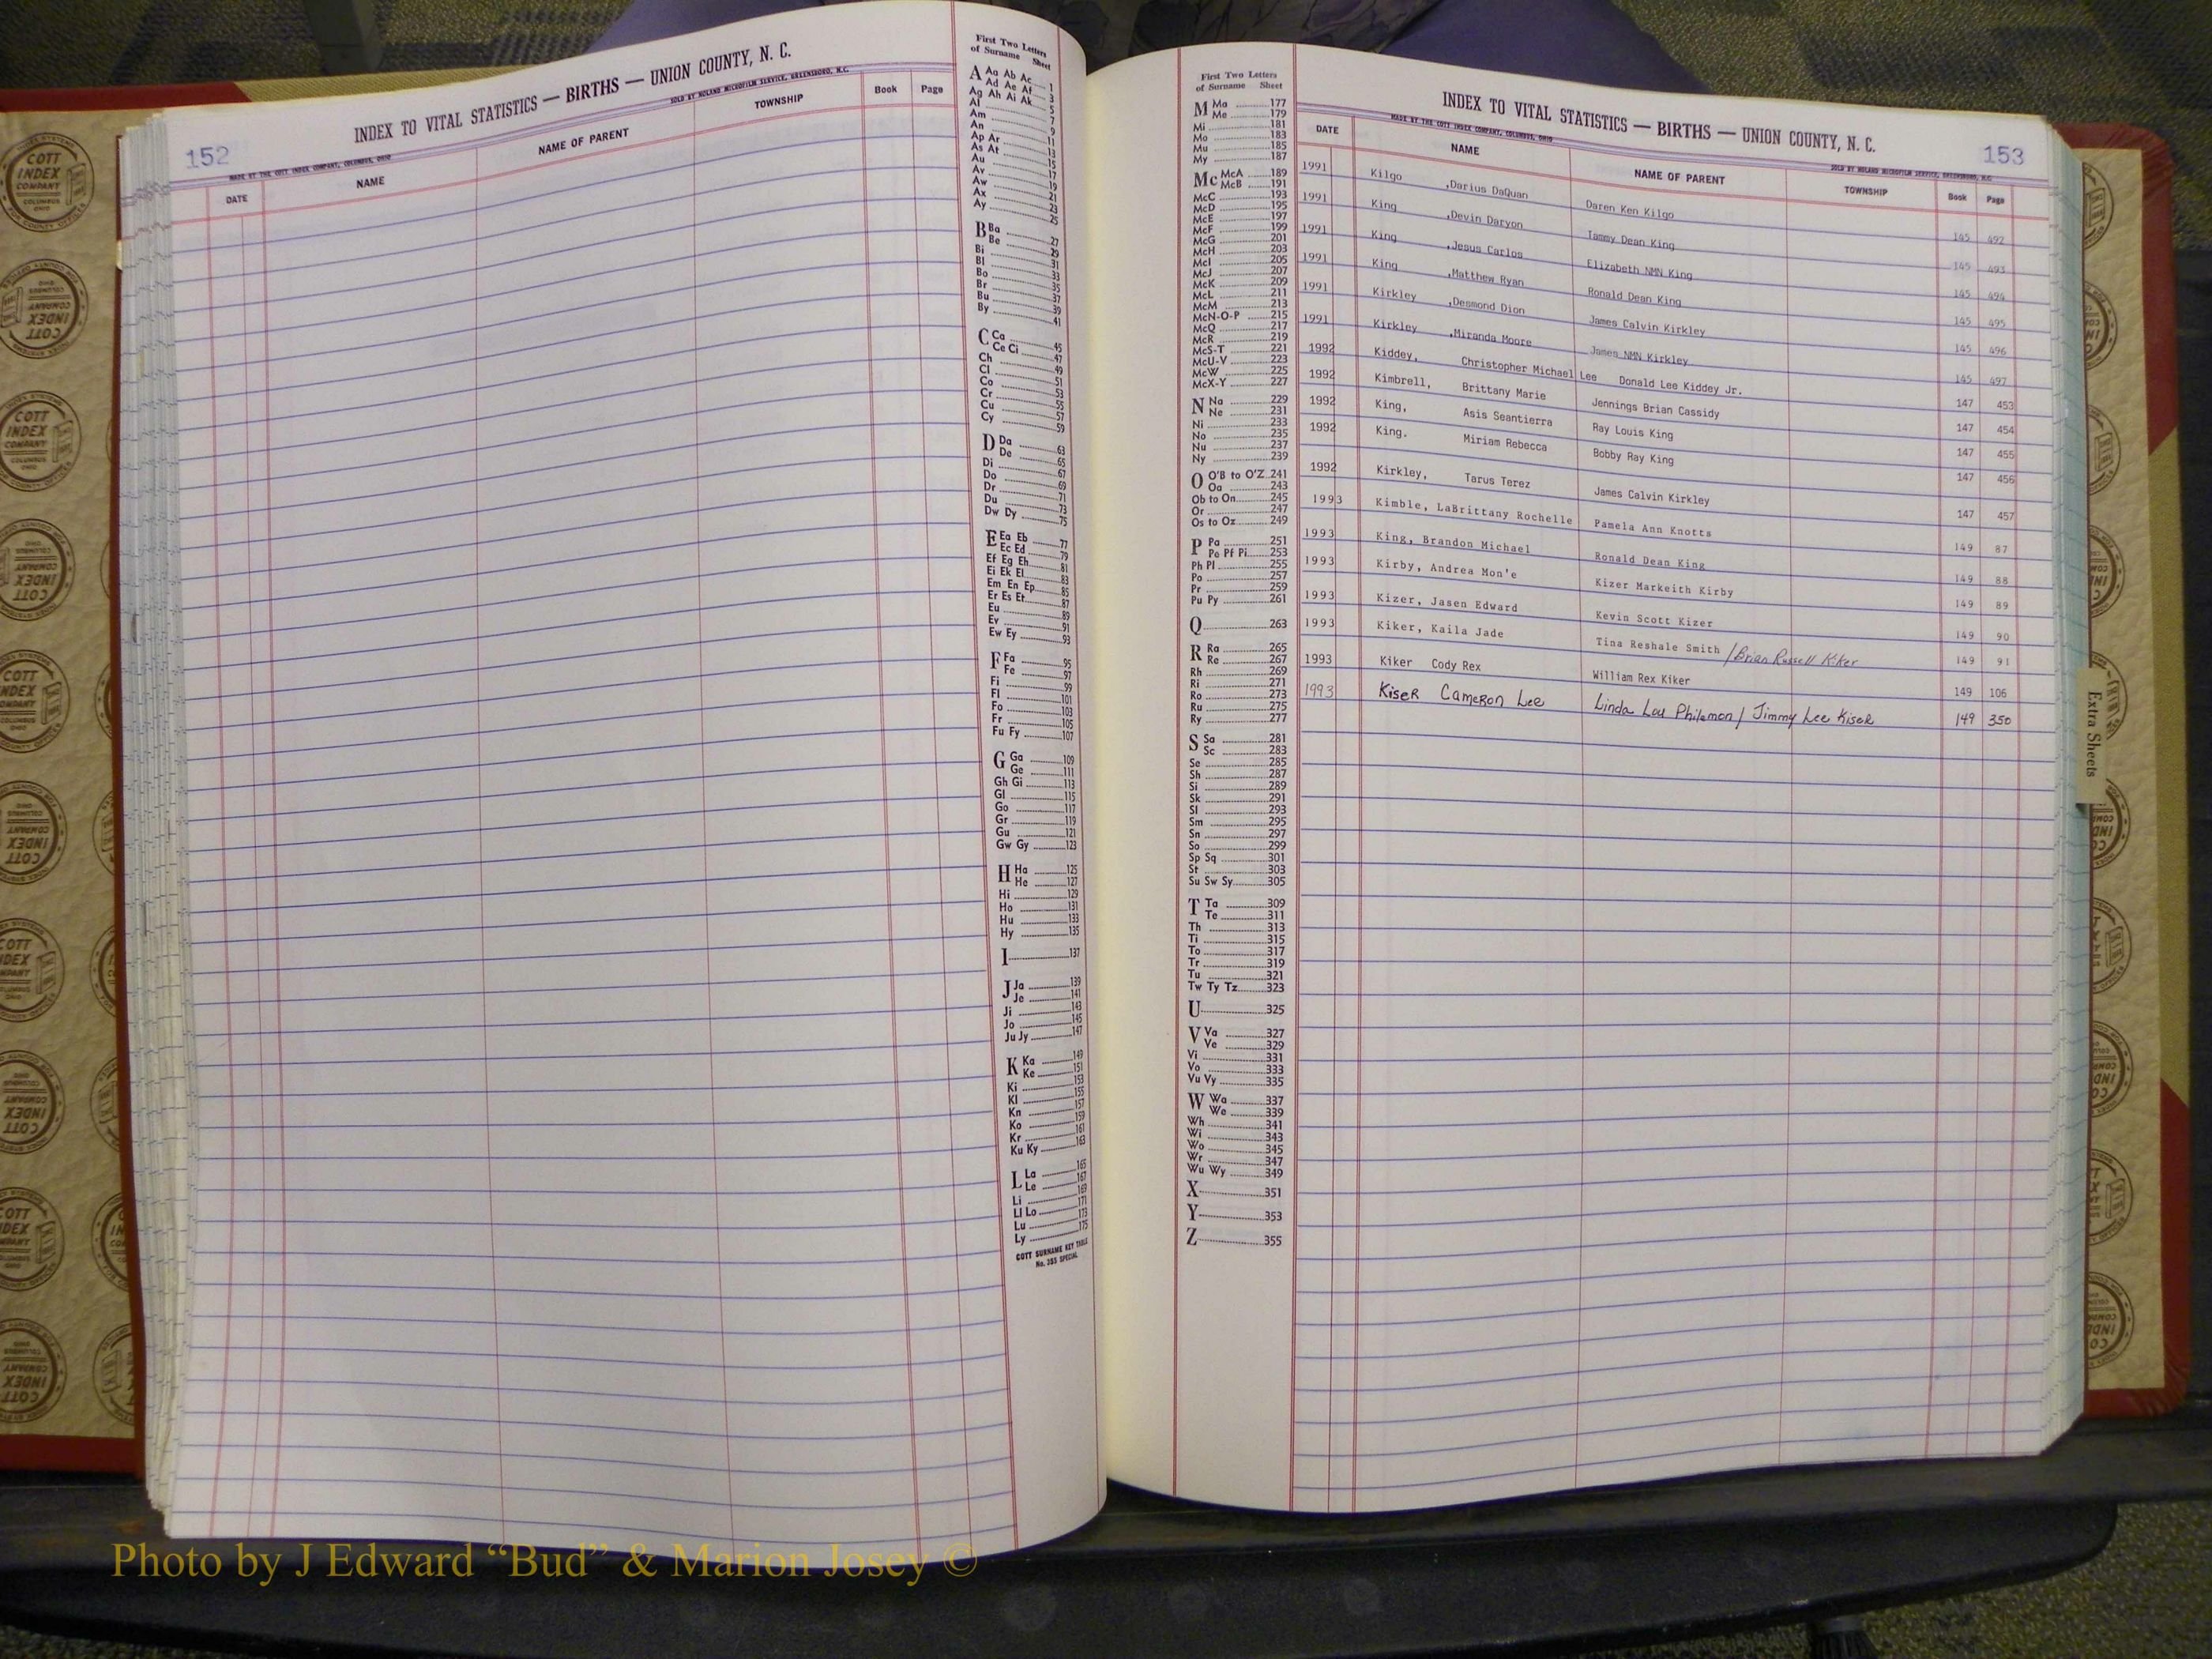 152
INDEX TO VITAL STATISTICS — BIRTHS — UNION COUNTY, N. C.
MADE BY THE COTT INDEX COMPANY, COLUMBUS, OHIO
SOLD BY NOLAND MICROFILM SERVICE, GREENSBORO, N.C.
DATE NAME NAME OF PARENT TOWNSHIP Book Page
First Two Letters
of Surname Sheet
A Aa Ab Ac 1
Ad Ae Af 3
Ag Ah Ai Ak 5
Al 7
Am 9
An 11
Ap Ar 13
As At 15
Au 17
Av 19
Aw 21
Ax 23
Ay 25
B Ba 27
Be 29
Bi 31
Bl 33
Bo 35
Br 37
Bu 39
By 41
C Ca 45
Ce Ci 47
Ch 49
Cl 51
Co 53
Cr 55
Cu 57
Cy 59
D Da 63
De 65
Di 67
Do 69
Dr 71
Du 73
Dw Dy 75
E Ea Eb 77
Ec Ed 79
Ef Eg Eh 81
Ei Ek El 83
Em En Ep 85
Er Es Et 87
Eu 89
Ev 91
Ew Ey 93
F Fa 95
Fe 97
Fi 99
Fl 101
Fo 103
Fr 105
Fu Fy 107
G Ga 109
Ge 111
Gh Gi 113
Gl 115
Go 117
Gr 119
Gu 121
Gw Gy 123
H Ha 125
He 127
Hi 129
Ho 131
Hu 133
Hy 135
I 137
J Ja 139
Je 141
Ji 143
Jo 145
Ju Jy 147
K Ka 149
Ke 151
Ki 153
Kl 155
Kn 157
Ko 159
Kr 161
Ku Ky 163
L La 165
Le 167
Li 169
Ll Lo 171
Lu 173
Ly 175
COTT SURNAME KEY TABLE
No. 355 SPECIAL
First Two Letters
of Surname Sheet
M Ma 177
Me 179
Mi 181
Mo 183
Mu 185
My 187
Mc McA 189
McB 191
McC 193
McD 195
McE 197
McF 199
McG 201
McH 203
McI 205
McJ 207
McK 209
McL 211
McM 213
McN-O-P 215
McQ 217
McR 219
McS-T 221
McU-V 223
McW 225
McX-Y 227
N Na 229
Ne 231
Ni 233
No 235
Nu 237
Ny 239
O O'B to O'Z 241
Oa 243
Ob to On 245
Or 247
Os to Oz 249
P Pa 251
Pe Pf Pi 253
Ph Pl 255
Po 257
Pr 259
Pu Py 261
Q 263
R Ra 265
Re 267
Rh 269
Ri 271
Ro 273
Ru 275
Ry 277
S Sa 281
Sc 283
Se 285
Sh 287
Si 289
Sk 291
Sl 293
Sm 295
Sn 297
So 299
Sp Sq 301
St 303
Su Sw Sy 305
T Ta 309
Te 311
Th 313
Ti 315
To 317
Tr 319
Tu 321
Tw Ty Tz 323
U 325
V Va 327
Ve 329
Vi 331
Vo 333
Vu Vy 335
W Wa 337
We 339
Wh 341
Wi 343
Wo 345
Wr 347
Wu Wy 349
X 351
Y 353
Z 355
INDEX TO VITAL STATISTICS — BIRTHS — UNION COUNTY, N. C.
153
MADE BY THE COTT INDEX COMPANY, COLUMBUS, OHIO
SOLD BY NOLAND MICROFILM SERVICE, GREENSBORO, N.C.
DATE NAME NAME OF PARENT TOWNSHIP Book Page
1991 Kilgo ,Darius DaQuan Daren Ken Kilgo 145 492
1991 King ,Devin Daryon Tammy Dean King 145 493
1991 King ,Jesus Carlos Elizabeth NMN King 145 494
1991 King ,Matthew Ryan Ronald Dean King 145 495
1991 Kirkley ,Desmond Dion James Calvin Kirkley 145 496
1991 Kirkley ,Miranda Moore James NMN Kirkley 145 497
1992 Kiddey, Christopher Michael Lee Donald Lee Kiddey Jr. 147 453
1992 Kimbrell, Brittany Marie Jennings Brian Cassidy 147 454
1992 King, Asis Seantierra Ray Louis King 147 455
1992 King. Miriam Rebecca Bobby Ray King 147 456
1992 Kirkley, Tarus Terez James Calvin Kirkley 147 457
1993 Kimble, LaBrittany Rochelle Pamela Ann Knotts 149 87
1993 King, Brandon Michael Ronald Dean King 149 88
1993 Kirby, Andrea Mon'e Kizer Markeith Kirby 149 89
1993 Kizer, Jasen Edward Kevin Scott Kizer 149 90
1993 Kiker, Kaila Jade Tina Reshale Smith /Brian Russell Kiker 149 91
1993 Kiker Cody Rex William Rex Kiker 149 106
1993 Kiser Cameron Lee Linda Lou Philemon/ Jimmy Lee Kiser 149 350
Extra Sheets
COTT
INDEX
COMPANY
Photo by J Edward “Bud” & Marion Josey ©